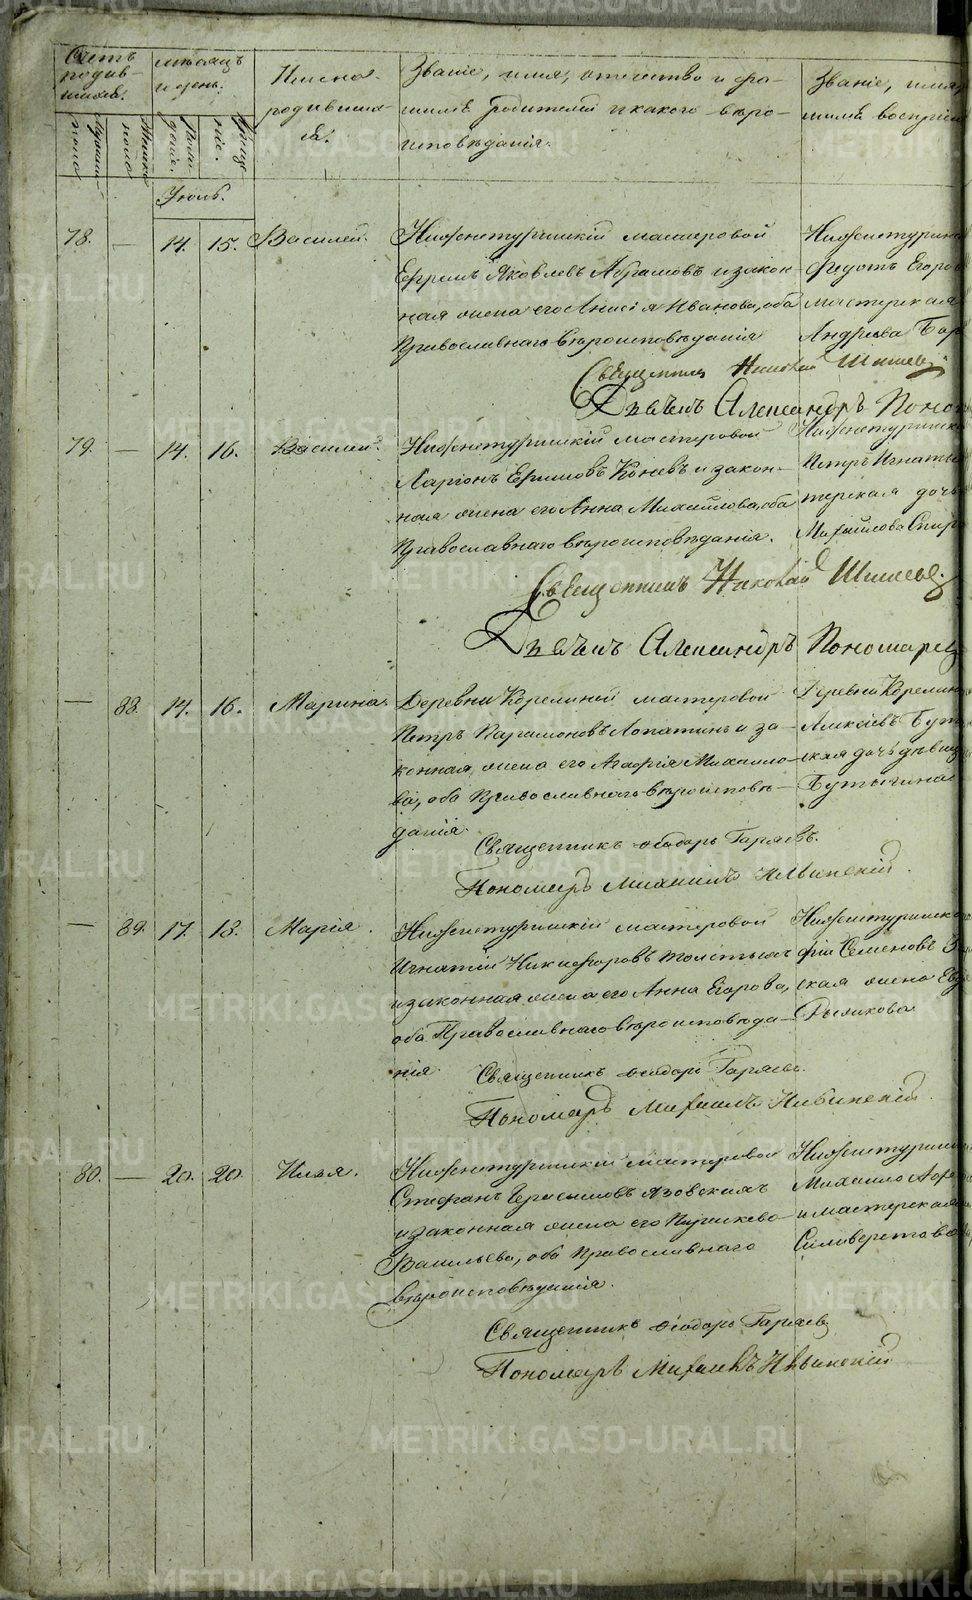 Счетъ родив-шихся.
мѣсяцъ и день.
Имена родившихся.
Званіе, имя, отечество и фа-
милія родителей и какого вѣро-
исповѣданія.
Званіе, имя,
милія воспрія
мужеска пола
женска пола
рожденія.
крещенія.
Іюль.
78. — 14. 15. Василей.
Нижнетуринскій мастеровой
Ефремъ Яковлевъ Абрамовъ и закон-
ная жена его Анисія Иванова, оба
Православнаго вѣроисповѣданія
Нижнетуринс
Федотъ Егоров
мастерская
Андрѣева Бор
Священникъ Николай Шишевъ
Дьячекъ Александръ Поном
79. — 14. 16. Василей.
Нижнетуринскій мастеровой
Ларіонъ Ефимовъ Коневъ и закон-
ная жена его Анна Михайлова, оба
Православнаго вѣроисповѣданія.
Нижнетуринск
Петръ Игнатье
терская дочь
Михайлова Спир
Священникъ Николай Шишевъ.
Дьячекъ Александръ Пономарев
— 88. 14. 16. Марина.
Деревни Корелиной мастеровой
Петръ Парамоновъ Лопатинъ и за-
конная жена его Агафія Михайло-
ва, оба Православнаго вѣроисповѣ-
данія.
Деревни Корелино
Алексѣевъ Бут
ская дочь дѣвиц
Бутыгина
Священникъ Ѳеодоръ Гаряевъ.
Пономарь Михаилъ Ивынскій.
— 89. 17. 18. Марія.
Нижнетуринскій мастеровой
Игнатій Никифоровъ Толстыхъ
и законная жена его Анна Егорова,
оба Православнаго вѣроисповѣда-
нія.
Нижнетуринско
фій Семеновъ З
ская жена Евд
Рыликова
Священникъ Ѳеодоръ Гаряевъ.
Пономарь Михаилъ Ивынскій.
80. — 20. 20. Илья.
Нижнетуринскій мастеровой
Стефанъ Герасимовъ Язовскихъ
и законная жена его Параскева
Васильева, оба Православнаго
вѣроисповѣданія.
Нижнетуринс
Михайло
и мастерская
Силиверстова
Священникъ Ѳеодоръ Гаряевъ
Пономарь Михаилъ Ивынскій
METRIKI.GASO-URAL.RU